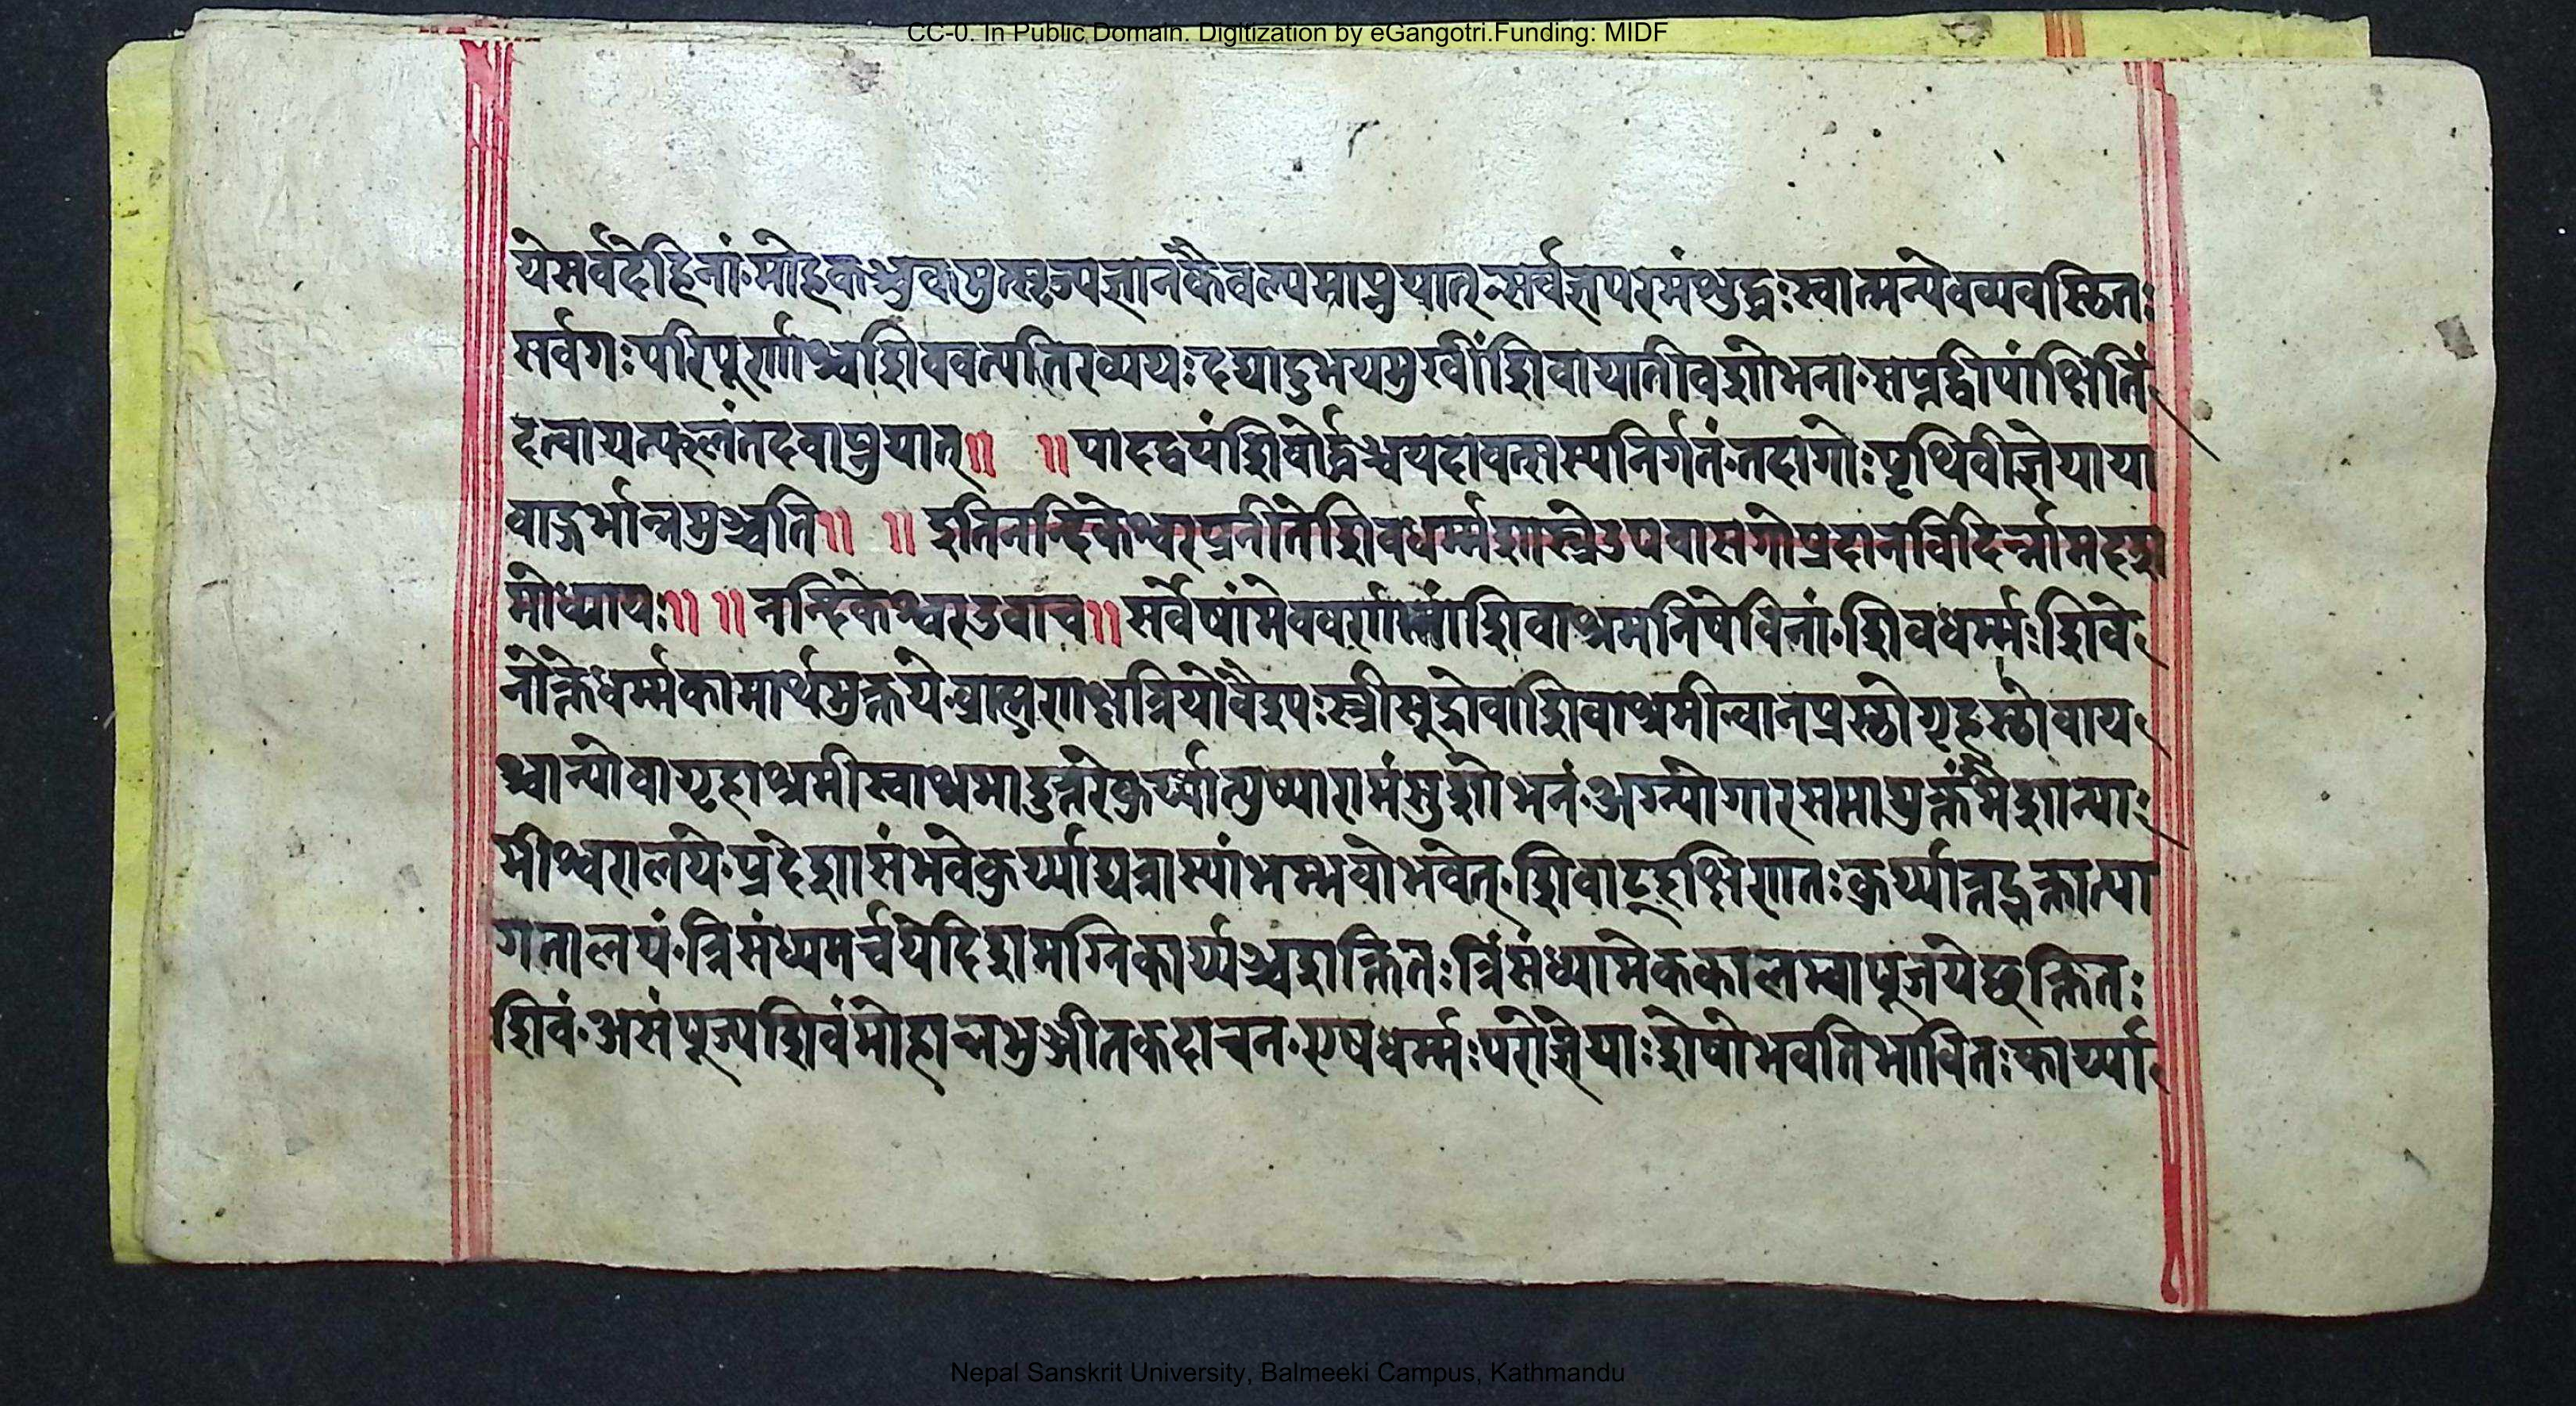 CC-0. In Public Domain. Digitization by eGangotri.Funding: MIDF
येसर्वदेहिनां॰मोहकञ्चुकमुत्सृज्यज्ञानकैवल्यमाप्नुयात्सर्वज्ञपरमंशुद्धःस्वात्मन्येवव्यवस्छितः
सर्वगःपरिपूर्णाश्चशिववत्पतिरव्ययःदद्यादुभयमुखींशिवायातीवशोभना॰सप्तद्वीपांक्षितिं
दत्वायत्फलंतदवाप्नुयात्॥ ॥पादद्वयंशिरोर्द्धञ्चयदावत्सस्यनिर्गतं॰तदागोःपृथिवीज्ञेयाया
वाद्गर्भान्नमुञ्चति॥ ॥इतिनन्दिकेश्वरप्रनीतेशिवधर्म्मशास्त्रेउपवासगोप्रदानविदिर्न्नामदश
मोध्यायः॥ ॥नन्दिकेश्वरउवाच॥सर्वेषांमेववर्णानांशिवाश्रमनिषेविनां॰शिवधर्म्मःशिवे
नोक्तेधर्म्मकामार्थमुक्तये॰ब्राह्मणाक्षत्रियोवैश्यःस्त्रीसूद्रोवाशिवाश्रमीन्वानप्रस्छोगृहस्छोवाय
श्चान्योवागृहाश्रमीस्वाश्रमादुत्तरेकुर्य्यात्पुष्पारामंसुशोभनं॰अग्न्यागारसमायुक्तंमैशान्याः
मीश्वरालये॰प्रदेशासंभवेकुर्य्याद्यत्रास्यांभम्मवोभवेत्॰शिवाद्दक्षिणातःकुर्य्यात्तद्भक्तात्या
गतालयं॰त्रिसंध्यमर्च्चयेदिशमग्निकार्य्यञ्चशक्तितःत्रिंसंध्यामेककालम्वापूजयेच्छक्तितः
शिवं॰असंपूज्यशिवंमोहान्नभुञ्जीतकदाचन॰एषधर्म्मःपरोज्ञेयाःशेषोभवतिभावितःकार्य्या
Nepal Sanskrit University, Balmeeki Campus, Kathmandu